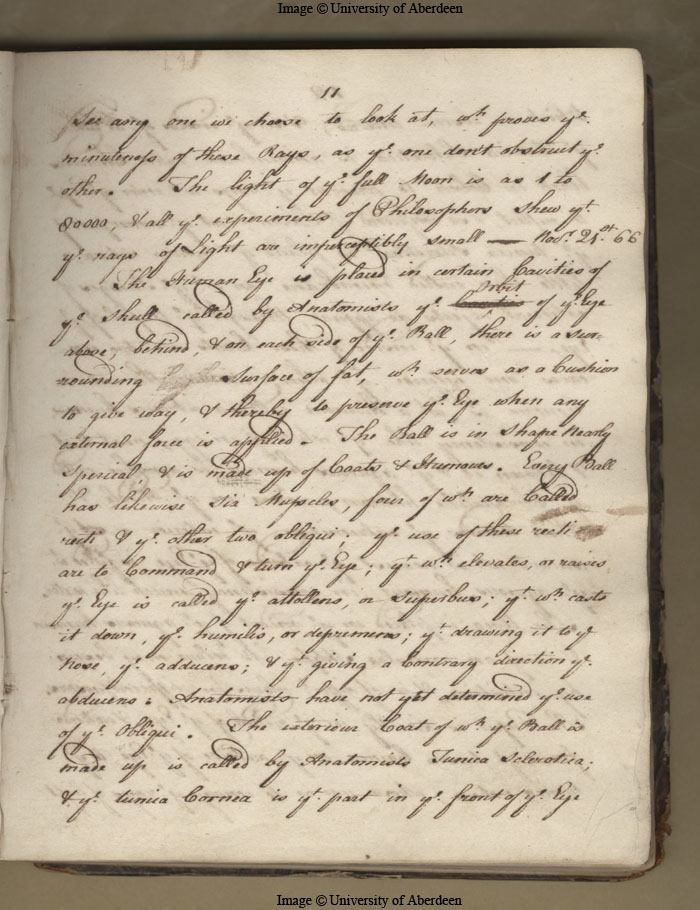 Image © University of Aberdeen
11
See any one we choose to look at, wh. proves ye.
minuteness of these Rays, as ye. one don't obstruct ye.
other. The light of ye. full Moon is as 1 to
80000, & all ye. experiments of Philosophers shew yt.
ye. rays of Light are imperceptibly small — Novr. 21st. 66
The Human Eye is placed in certain Cavities of
Orbit
ye. skull called by Anatomists ye. of ye. Eye
above, behind, & on each side of ye. Ball, there is a sur-
rounding surface of fat, wh. serves as a Cushion
to give way, & thereby to preserve ye. Eye when any
external force is applied. The Ball is in shape nearly
Sperical, & is made up of Coats & Humours. Every Ball
has likewise six Muscles, four of wh. are Called
recti & ye. other two obliqui; ye. use of these recti
are to Command & turn ye. Eye; yt. wh. elevates, or raises
ye. Eye is called ye. attollens, or Superbus; yt. wh. casts
it down, ye. humilis, or deprimens; yt. drawing it to ye
Nose, ye. adducens; & ye. giving a Contrary direction ye.
abducens: Anatomists have not yet determined ye. use
of ye. Obliqui. The exteriour Coat of wh. ye. Ball is
made up is called by Anatomists Tunica Sclerotica;
& ye. tunica Cornea is yt. part in ye. front of ye. Eye
Image © University of Aberdeen